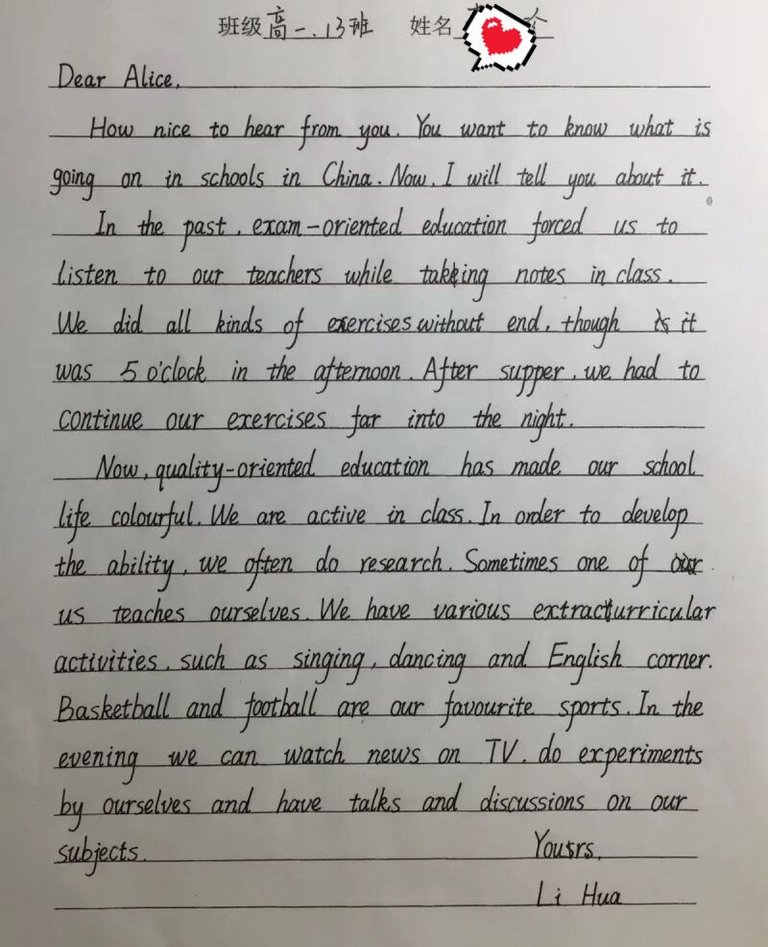 班级 高一.13班 姓名
Dear Alice,
How nice to hear from you. You want to know what is
going on in schools in China. Now, I will tell you about it.
In the past, exam-oriented education forced us to
listen to our teachers while taking notes in class.
We did all kinds of exercises without end, though it
was 5 o'clock in the afternoon. After supper, we had to
continue our exercises far into the night.
Now, quality-oriented education has made our school
life colourful. We are active in class. In order to develop
the ability, we often do research. Sometimes one of
us teaches ourselves. We have various extracurricular
activities, such as singing, dancing and English corner.
Basketball and football are our favourite sports. In the
evening we can watch news on TV, do experiments
by ourselves and have talks and discussions on our
subjects.
Yours,
Li Hua